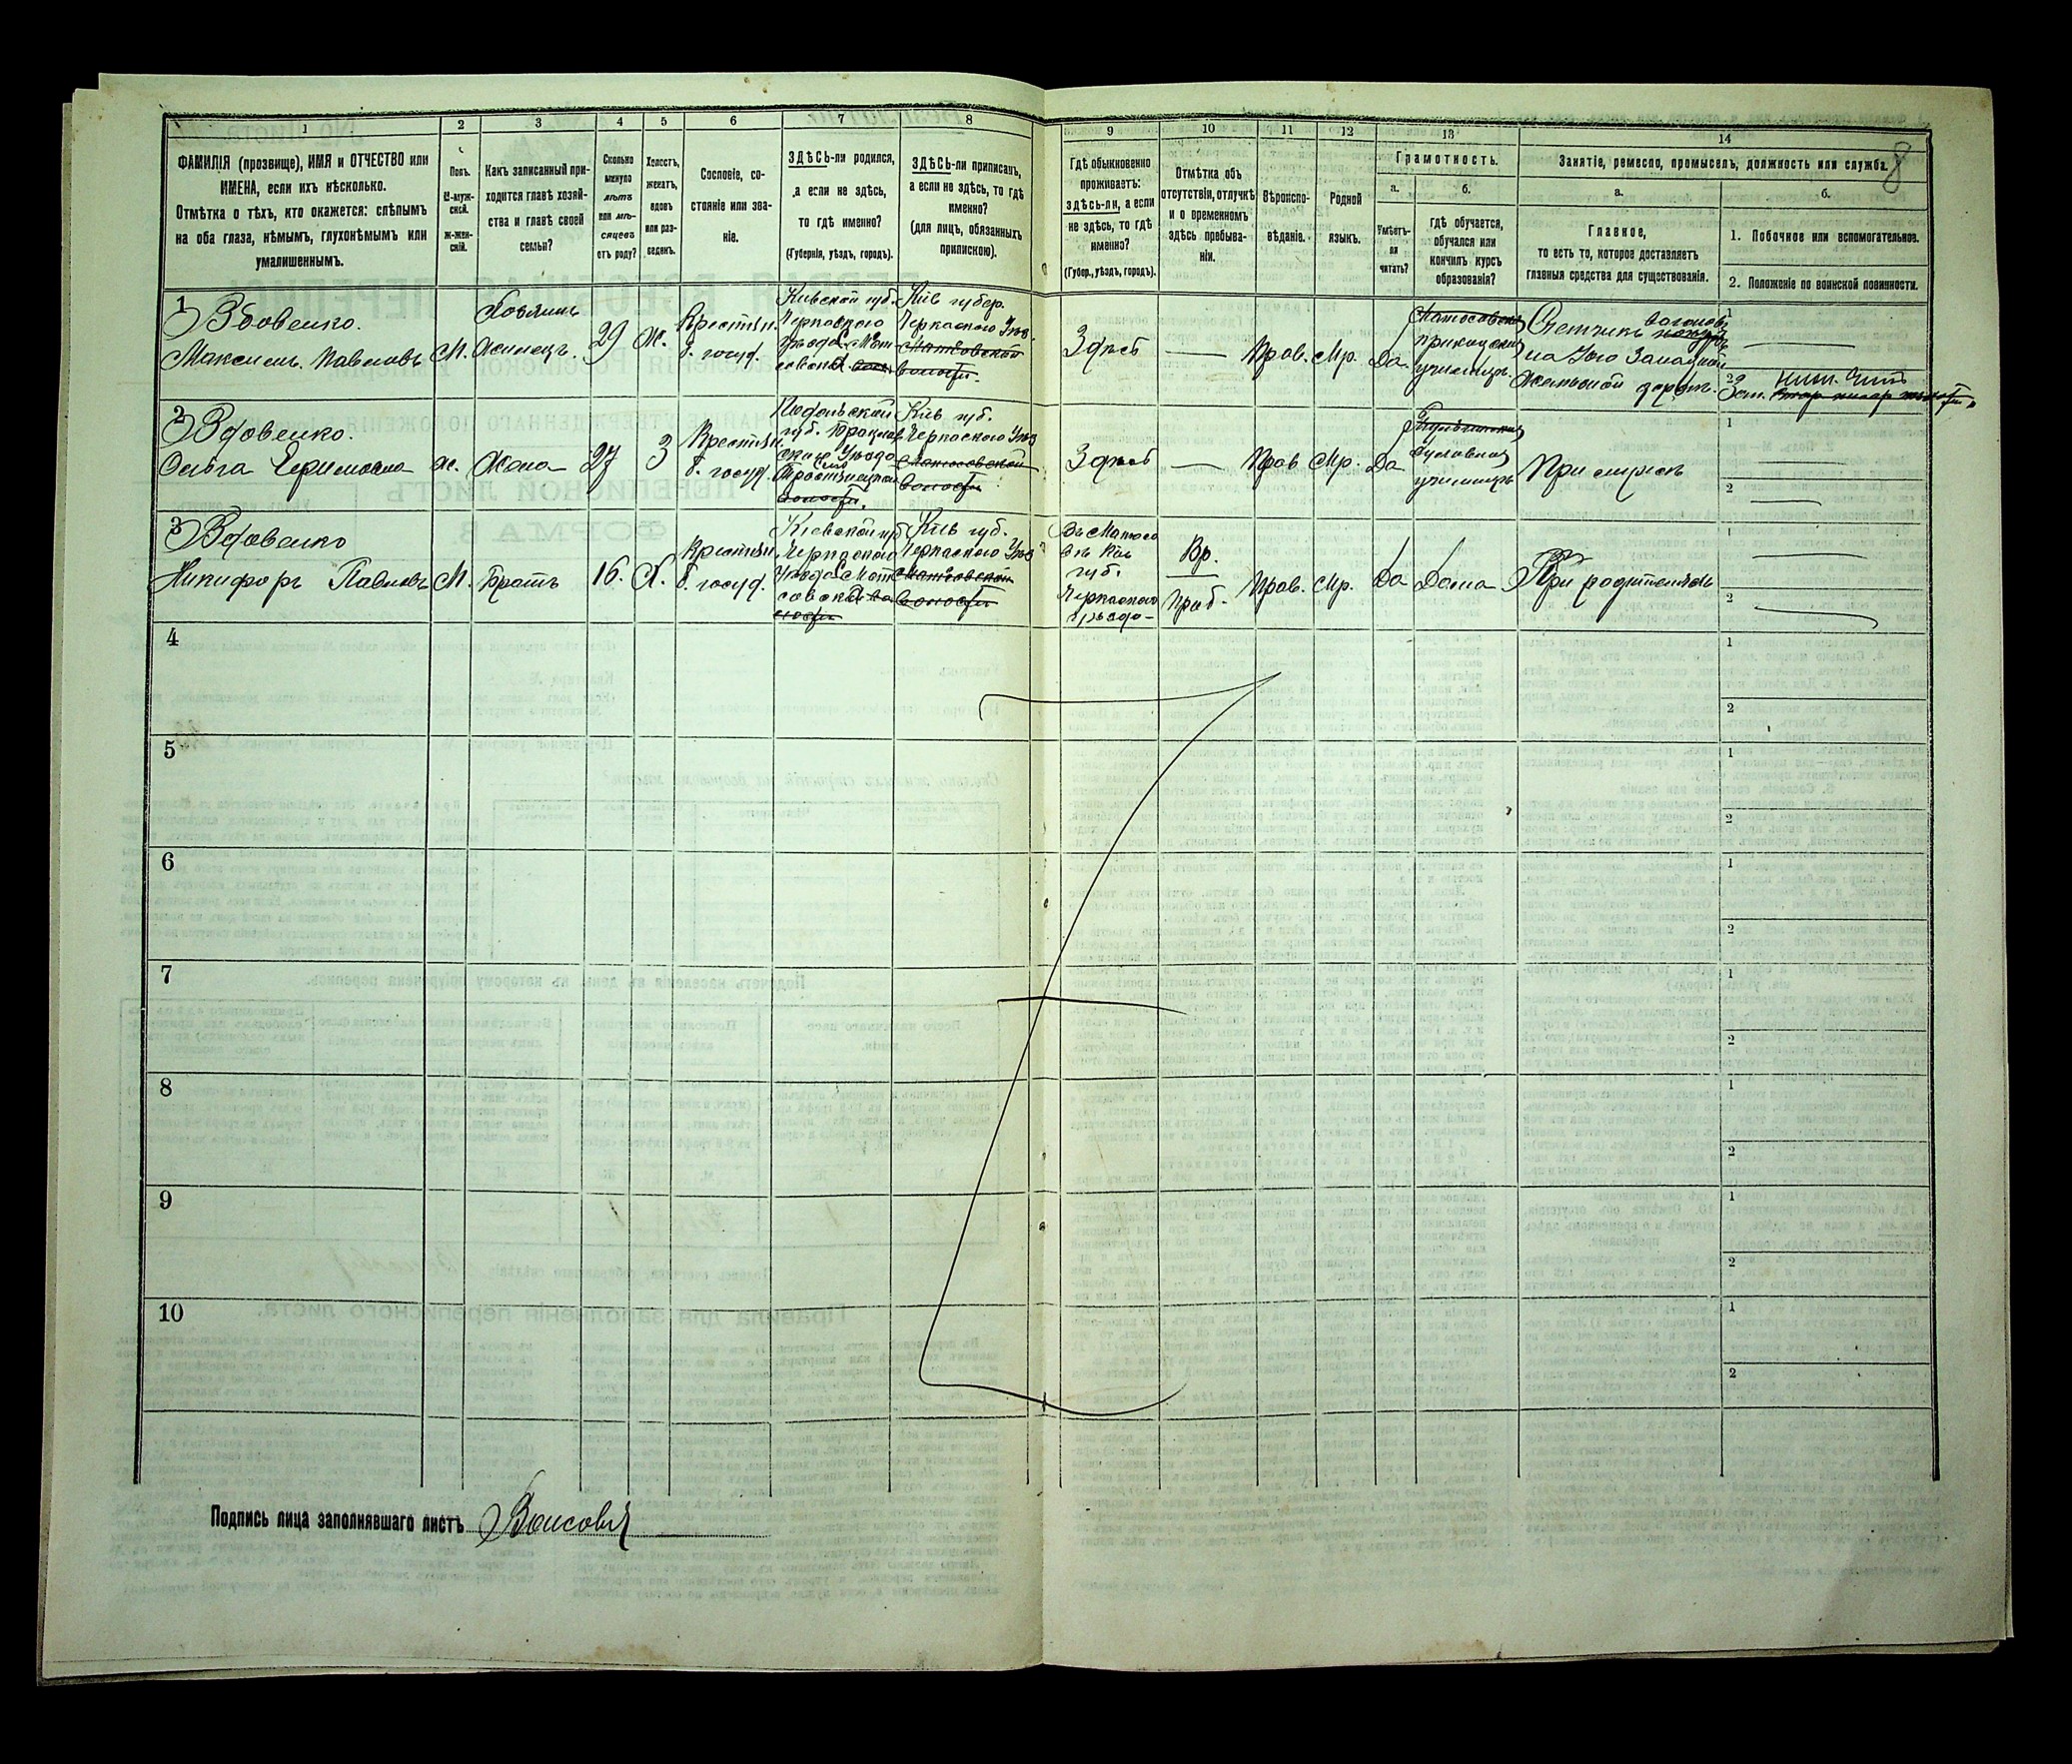 1 2 3 4 5 6 7 8 9 10 11 12 13 14
8
ФАМИЛІЯ (прозвище), ИМЯ и ОТЧЕСТВО или
ИМЕНА, если ихъ нѣсколько.
Отмѣтка о тѣхъ, кто окажется: слѣпымъ
на оба глаза, нѣмымъ, глухонѣмымъ или
умалишеннымъ.
Полъ.
М-муж-
ской.
ж-жен-
скій.
Какъ записанный при-
ходится главѣ хозяй-
ства и главѣ своей
семьи?
Сколько
минуло
лѣтъ
или мѣ-
сяцевъ
отъ роду?
Холостъ,
женатъ,
вдовъ
или раз-
веденъ.
Сословіе, со-
стояніе или зва-
ніе.
ЗДѢСЬ-ли родился,
а если не здѣсь,
то гдѣ именно?
(Губернія, уѣздъ, городъ).
ЗДѢСЬ-ли приписанъ,
а если не здѣсь, то гдѣ
именно?
(для лицъ, обязанныхъ
припискою).
Гдѣ обыкновенно
проживаетъ:
здѣсь-ли, а если
не здѣсь, то гдѣ
именно?
(Губер., уѣздъ, городъ).
Отмѣтка объ
отсутствіи, отлучкѣ
и о временномъ
здѣсь пребыва-
ніи.
Вѣроиспо-
вѣданіе.
Родной
языкъ.
Грамотность.
а.
Умѣетъ-
ли
читать?
б.
Гдѣ обучается,
обучался или
кончилъ курсъ
образованія?
Занятіе, ремесло, промыселъ, должность или служба.
а.
Главное,
то есть то, которое доставляетъ
главныя средства для существованія.
б.
1. Побочное или вспомогательное.
2. Положеніе по воинской повинности.
1
Вдовенко.
Максимъ Павловъ
М.
Хозяинъ
29
Ж.
Крестьян.
б. госуд.
Кіевской губ.
Черкаского
Уѣзда
Кіев губер.
Черкаского Уѣз.
Матсовской
волости.
Здѣсь
—
Прав.
Мр.
Да
училищѣ
Счетчикъ вагоновъ
на Юго Западной
желѣзной дорогѣ.
1
2
2
Вдовенко.
Ольга
ж.
Жена
27
З
Крестьян.
б. госуд.
Подольской
губ.
Уѣзда
волости.
Кіев губ.
Черкаского Уѣз
Матсовской
волости
Здѣсь
—
Прав
Мр.
Да
училищѣ
При мужѣ
1
2
3
Вдовенко
Никифоръ Павловъ
М.
Братъ
16.
Х.
Крестьян.
б. госуд.
Кіевской губ
Черкаского
Уѣзда
Кіев губ.
Черкаского Уѣз
Матсовской
волости
губ.
Черкаского
уѣзда
Вр.
Преб.
Прав.
Мр.
Да
Дома
При родителяхъ
1
2
4
1
2
5
1
2
6
1
2
7
1
2
8
1
2
9
1
2
10
1
2
Подпись лица заполнявшаго листъ